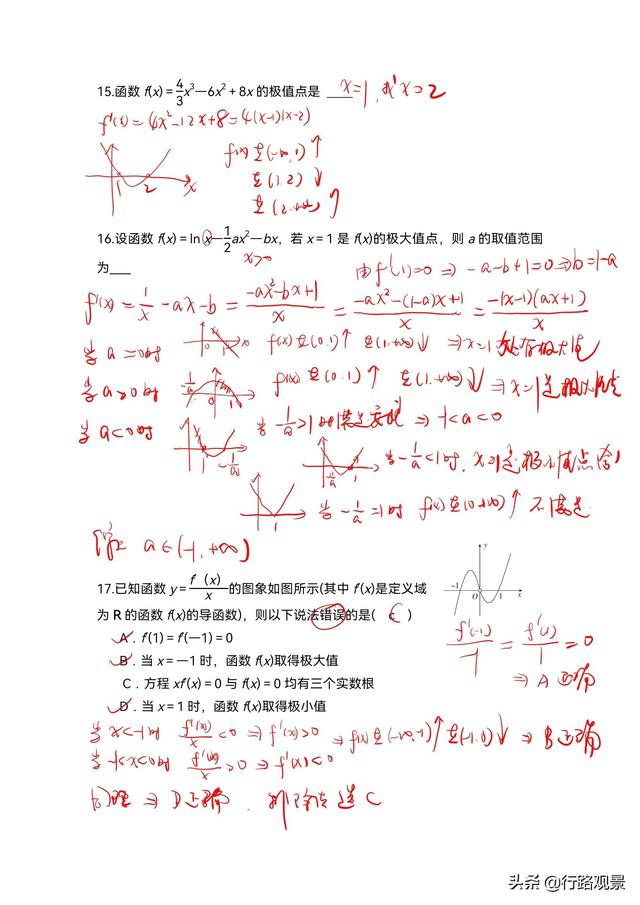 15.函数 f(x) = 4/3x³—6x² + 8x 的极值点是 ____ x=1, 或 x=2
f'(x) = 4x²-12x+8 = 4(x-1)(x-2)
f(x) 在(-∞,1)↑
在(1,2)↓
1 2 x
在(2,+∞)↑
16.设函数 f(x) = ln x—1/2ax²—bx，若 x = 1 是 f(x)的极大值点，则 a 的取值范围
为____
x>0
由f'(1)=0 ⇒ -a-b+1=0 ⇒ b=1-a
f'(x) = 1/x - ax - b = (-ax²-bx+1)/x = (-ax²-(1-a)x+1)/x = (-(x-1)(ax+1))/x
当 a=0时 f(x)在(0,1)↑ 在(1,+∞)↓ ⇒ x=1处有极大值
当 a>0时 f(x)在(0,1)↑ 在(1,+∞)↓ ⇒ x=1是极大值点
当 a<0时 1 -1/a 当 -1/a>1时满足 ⇒ -1<a<0
当 -1/a<1时, x=1是极小值点
当 -1/a=1时 f(x)在(0,+∞)↑ 不满足
a∈(-1,+∞)
17.已知函数 y = f'(x)/x 的图象如图所示(其中 f'(x)是定义域
为 R 的函数 f(x)的导函数)，则以下说法错误的是( C )
y
-1 O 1 x
f'(-1)/-1 = f'(1)/1 = 0
⇒ A 正确
A．f'(1) = f'(—1) = 0
B．当 x = —1 时，函数 f(x)取得极大值
C．方程 xf'(x) = 0 与 f(x) = 0 均有三个实数根
D．当 x = 1 时，函数 f(x)取得极小值
当 x<-1时 f'(x)/x<0 ⇒ f'(x)>0 ⇒ f(x)在(-∞,-1)↑在(-1,0)↓ ⇒ B正确
当 -1<x<0时 f'(x)/x>0 ⇒ f'(x)<0
同理 ⇒ D正确, 排除法选 C
头条 @行路观景